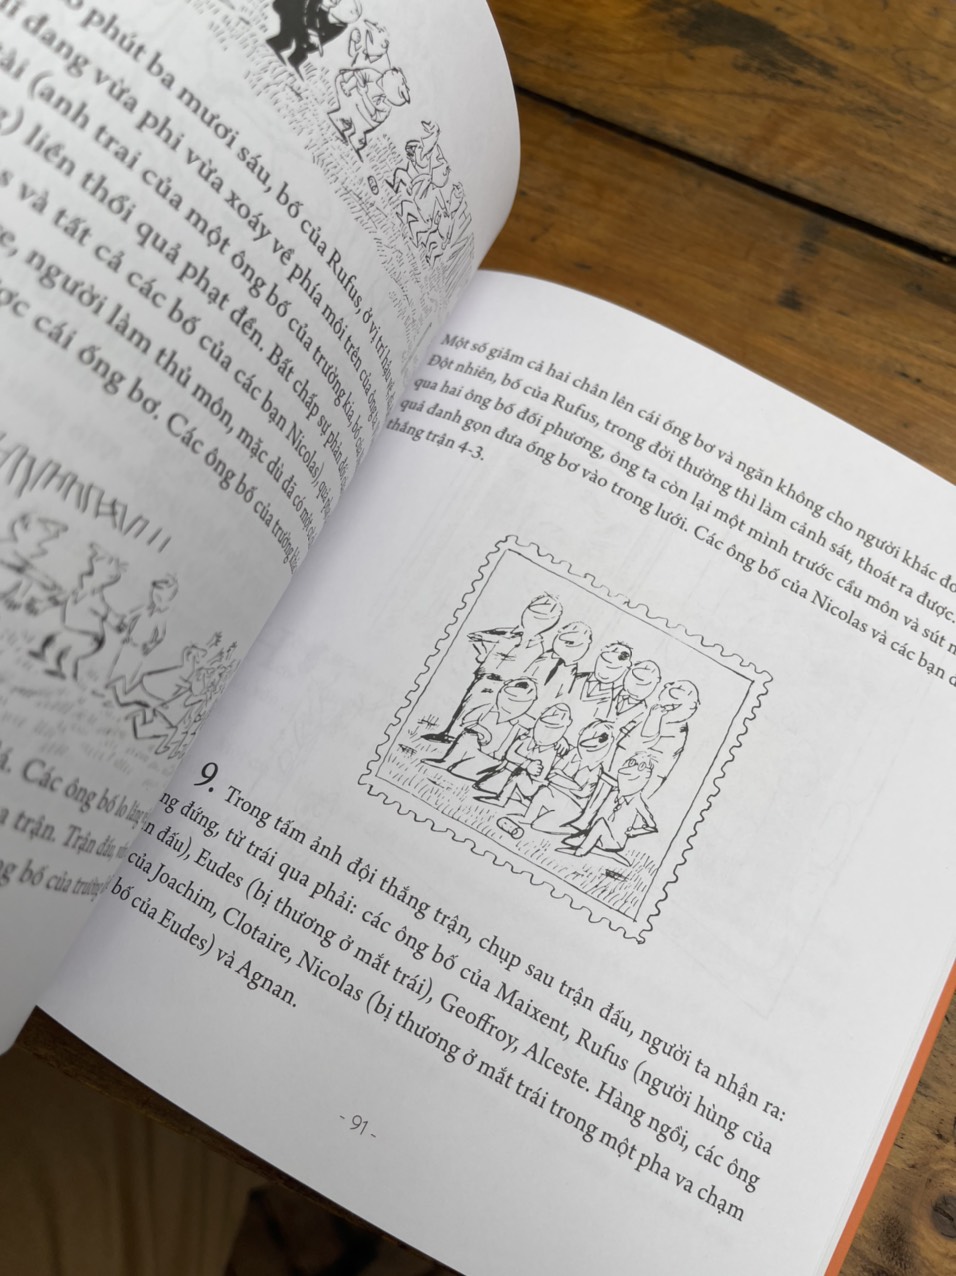 phút ba mươi sáu, bố của Rufus, ở vị trí hậu vệ
đang vừa phi vừa xoáy về phía môi trên của ông
tài (anh trai của một ông bố của trường kia, bố
liền thổi quả phạt đền. Bất chấp sự phản đối
và tất cả các bố của các bạn Nicolas), quả
người làm thủ môn, mặc dù đã có một
cái ống bơ. Các ông bố của trường
Các ông bố lo lắng
trận. Trận đấu,
bố của trường
Một số giẫm cả hai chân lên cái ống bơ và ngăn không cho người khác
Đột nhiên, bố của Rufus, trong đời thường thì làm cảnh sát, thoát ra được.
qua hai ông bố đối phương, ông ta còn lại một mình trước cầu môn và sút
quả danh gọn đưa ống bơ vào trong lưới. Các ông bố của Nicolas và các bạn
thắng trận 4-3.
9. Trong tấm ảnh đội thắng trận, chụp sau trận đấu, người ta nhận ra:
đứng, từ trái qua phải: các ông bố của Maixent, Rufus (người hùng của
đấu), Eudes (bị thương ở mắt trái), Geoffroy, Alceste. Hàng ngồi, các ông
của Joachim, Clotaire, Nicolas (bị thương ở mắt trái trong một pha va chạm
bố của Eudes) và Agnan.
- 91 -